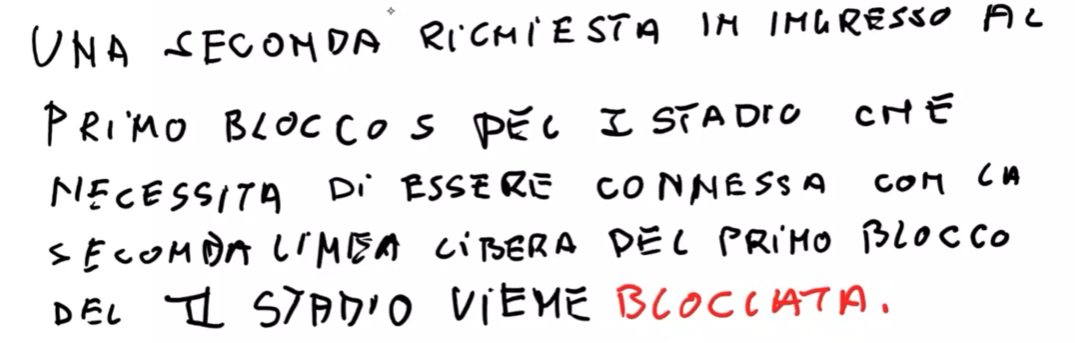 UNA SECONDA RICHIESTA IN INGRESSO AL
PRIMO BLOCCO S DEL I STADIO CHE
NECESSITA DI ESSERE CONNESSA CON LA
SECONDA LINEA LIBERA DEL PRIMO BLOCCO
DEL II STADIO VIENE BLOCCATA.